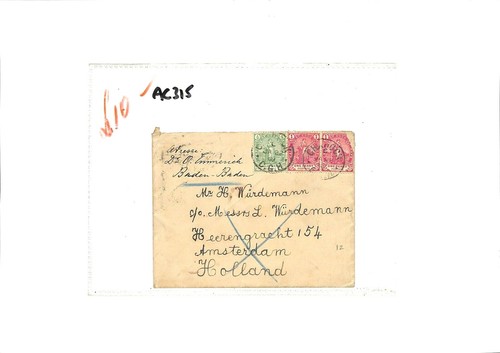 £10-
AC315
Adresse:
Dr. O. Emmerich
Baden-Baden
Mr H. Würdemann
c/o Messrs L. Würdemann
Heerengracht 154
Amsterdam
Holland
12